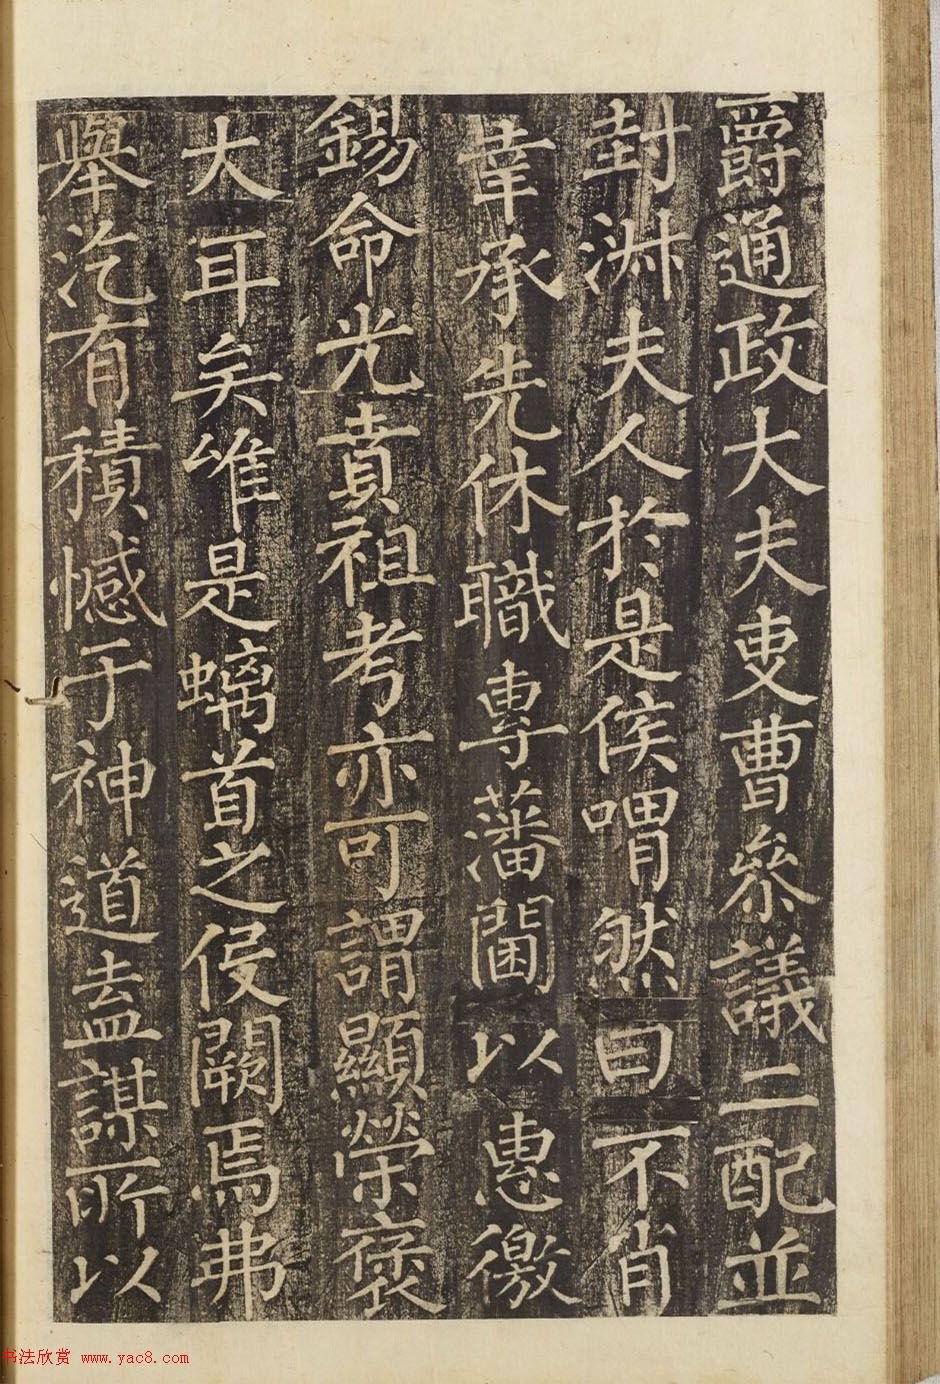 爵通政大夫吏曹參議二配並
封淑夫人於是侯喟然曰不肖
幸承先休職專藩閫以惠徼
錫命光賁祖考亦可謂顯榮褒
大耳矣唯是螭首之役闕焉弗
舉汔有積憾于神道盍謀所以
书法欣赏 www.yac8.com